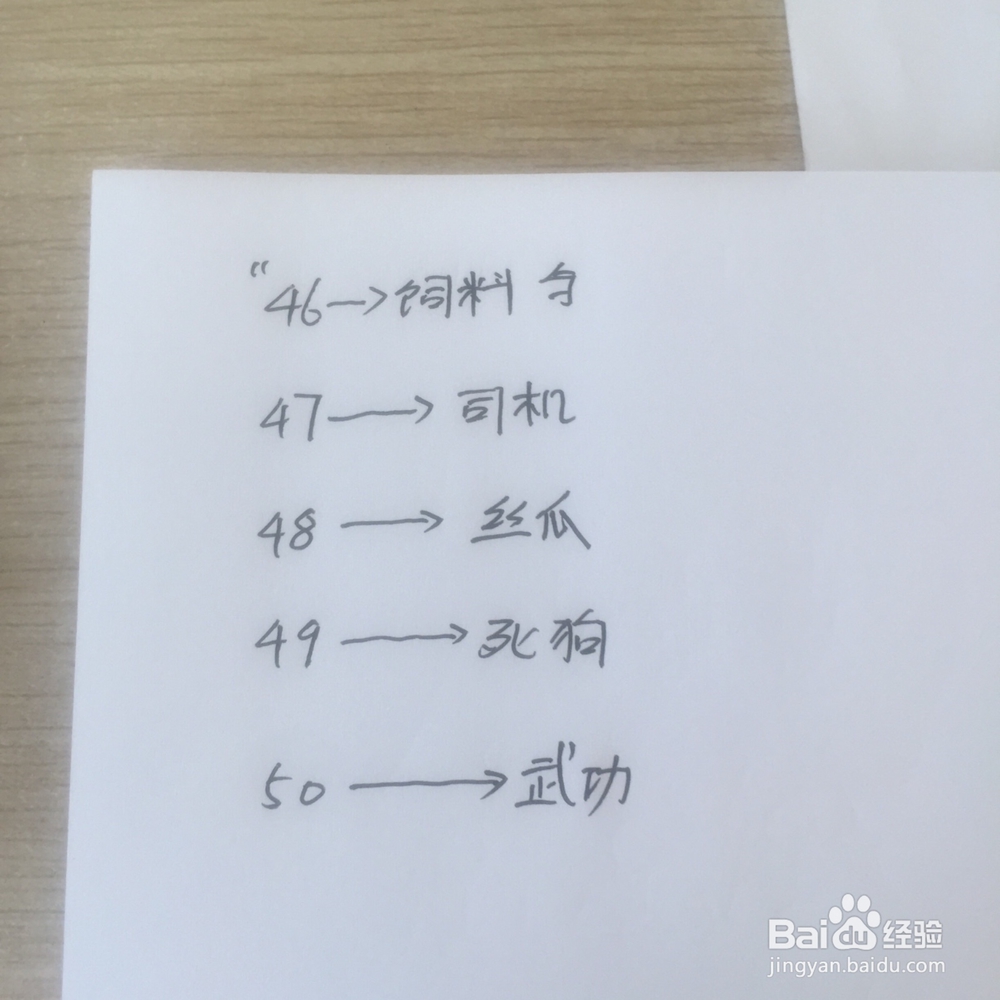 “46→饲料
47→司机
48→丝瓜
49→死狗
50→武功
Baidu经验
jingyan.baidu.com